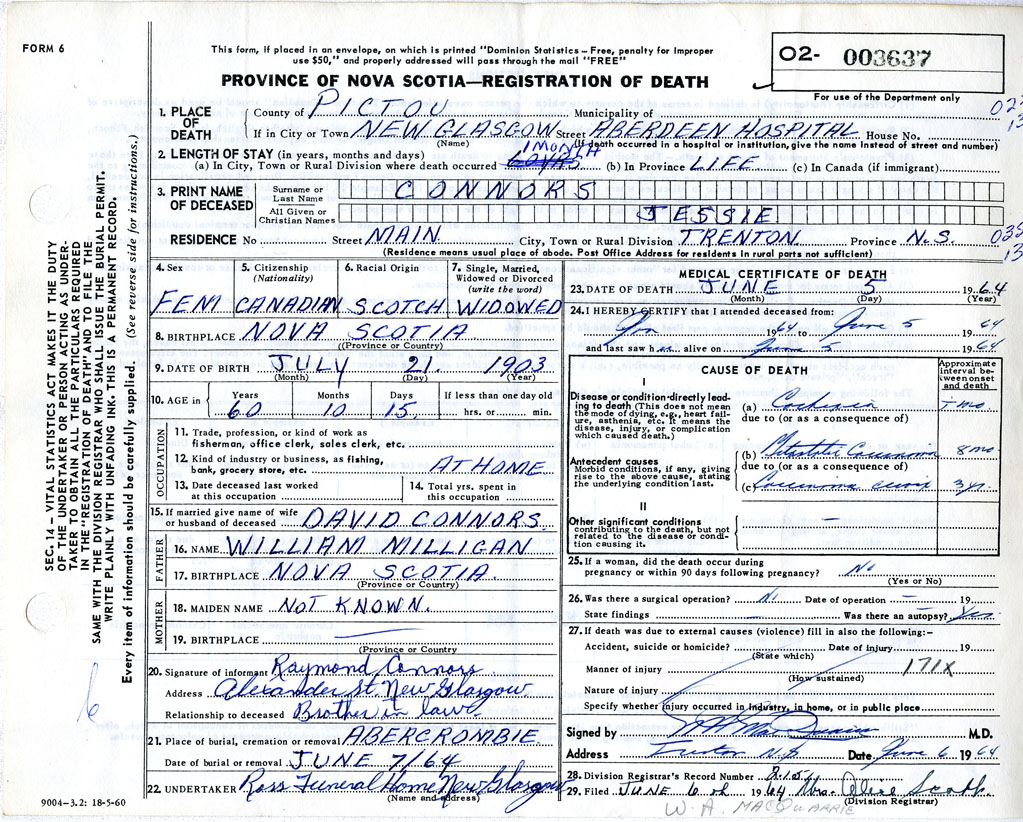 FORM 6
This form, if placed in an envelope, on which is printed "Dominion Statistics – Free, penalty for improper
use $50," and properly addressed will pass through the mail "FREE"
PROVINCE OF NOVA SCOTIA—REGISTRATION OF DEATH
02- 003637
For use of the Department only
1. PLACE OF DEATH
County of PICTOU Municipality of
If in City or Town NEW GLASGOW Street ABERDEEN HOSPITAL House No.
(Name) (If death occurred in a hospital or institution, give the name instead of street and number)
2. LENGTH OF STAY (in years, months and days) 1 MONTH
(a) In City, Town or Rural Division where death occurred (b) In Province LIFE (c) In Canada (if immigrant)
3. PRINT NAME OF DECEASED
Surname or Last Name CONNORS
All Given or Christian Names JESSIE
RESIDENCE No Street MAIN City, Town or Rural Division TRENTON Province N.S.
(Residence means usual place of abode. Post Office Address for residents in rural parts not sufficient)
SEC. 14 – VITAL STATISTICS ACT MAKES IT THE DUTY
OF THE UNDERTAKER OR PERSON ACTING AS UNDER-
TAKER TO OBTAIN ALL THE PARTICULARS REQUIRED
IN THE "REGISTRATION OF DEATH" AND TO FILE THE
SAME WITH THE DIVISION REGISTRAR WHO SHALL ISSUE THE BURIAL PERMIT.
WRITE PLAINLY WITH UNFADING INK. THIS IS A PERMANENT RECORD.
Every item of information should be carefully supplied. (See reverse side for instructions.)
4. Sex 5. Citizenship (Nationality) 6. Racial Origin 7. Single, Married, Widowed or Divorced (write the word)
FEM CANADIAN SCOTCH WIDOWED
8. BIRTHPLACE NOVA SCOTIA
(Province or Country)
9. DATE OF BIRTH JULY 21. 1903
(Month) (Day) (Year)
10. AGE in Years Months Days If less than one day old
60 10 15. hrs. or min.
OCCUPATION
11. Trade, profession, or kind of work as
fisherman, office clerk, sales clerk, etc.
12. Kind of industry or business, as fishing,
bank, grocery store, etc. AT HOME
13. Date deceased last worked at this occupation
14. Total yrs. spent in this occupation
15. If married give name of wife
or husband of deceased DAVID CONNORS.
FATHER
16. NAME WILLIAM MILLIGAN
17. BIRTHPLACE NOVA SCOTIA.
(Province or Country)
MOTHER
18. MAIDEN NAME NOT KNOWN.
19. BIRTHPLACE
(Province or Country
20. Signature of informant Raymond Connors
Address Alexander St. New Glasgow
Relationship to deceased Brother in law.
21. Place of burial, cremation or removal ABERCROMBIE.
Date of burial or removal JUNE 7/64
22. UNDERTAKER Ross Funeral Home New Glasgow
(Name and address)
9004–3.2: 18-5-60
6
MEDICAL CERTIFICATE OF DEATH
23. DATE OF DEATH JUNE 5 1964
(Month) (Day) (Year)
24. I HEREBY CERTIFY that I attended deceased from:
Jan 1964 to June 5 1964
and last saw h alive on June 5 1964
CAUSE OF DEATH
Approximate interval between onset and death
I
Disease or condition directly lead-
ing to death (This does not mean
the mode of dying, e.g., heart fail-
ure, asthenia, etc. It means the
disease, injury, or complication
which caused death.)
(a)
due to (or as a consequence of)
Antecedent causes
Morbid conditions, if any, giving
rise to the above cause, stating
the underlying condition last.
(b) Metastatic Carcinoma 8 mo
due to (or as a consequence of)
(c) Carcinoma cervix 3 yrs.
II
Other significant conditions
contributing to the death, but not
related to the disease or condi-
tion causing it.
25. If a woman, did the death occur during
pregnancy or within 90 days following pregnancy? No
(Yes or No)
26. Was there a surgical operation? No Date of operation – 19
State findings – Was there an autopsy? Yes.
27. If death was due to external causes (violence) fill in also the following:–
Accident, suicide or homicide? Date of injury 19
(State which)
Manner of injury 171X
(How sustained)
Nature of injury
Specify whether injury occurred in industry, in home, or in public place
Signed by M.D.
Address N.S Date June 6 1964
28. Division Registrar's Record Number
29. Filed JUNE 6 1964 Mrs.
(Division Registrar)
W. A. MACQUARRIE